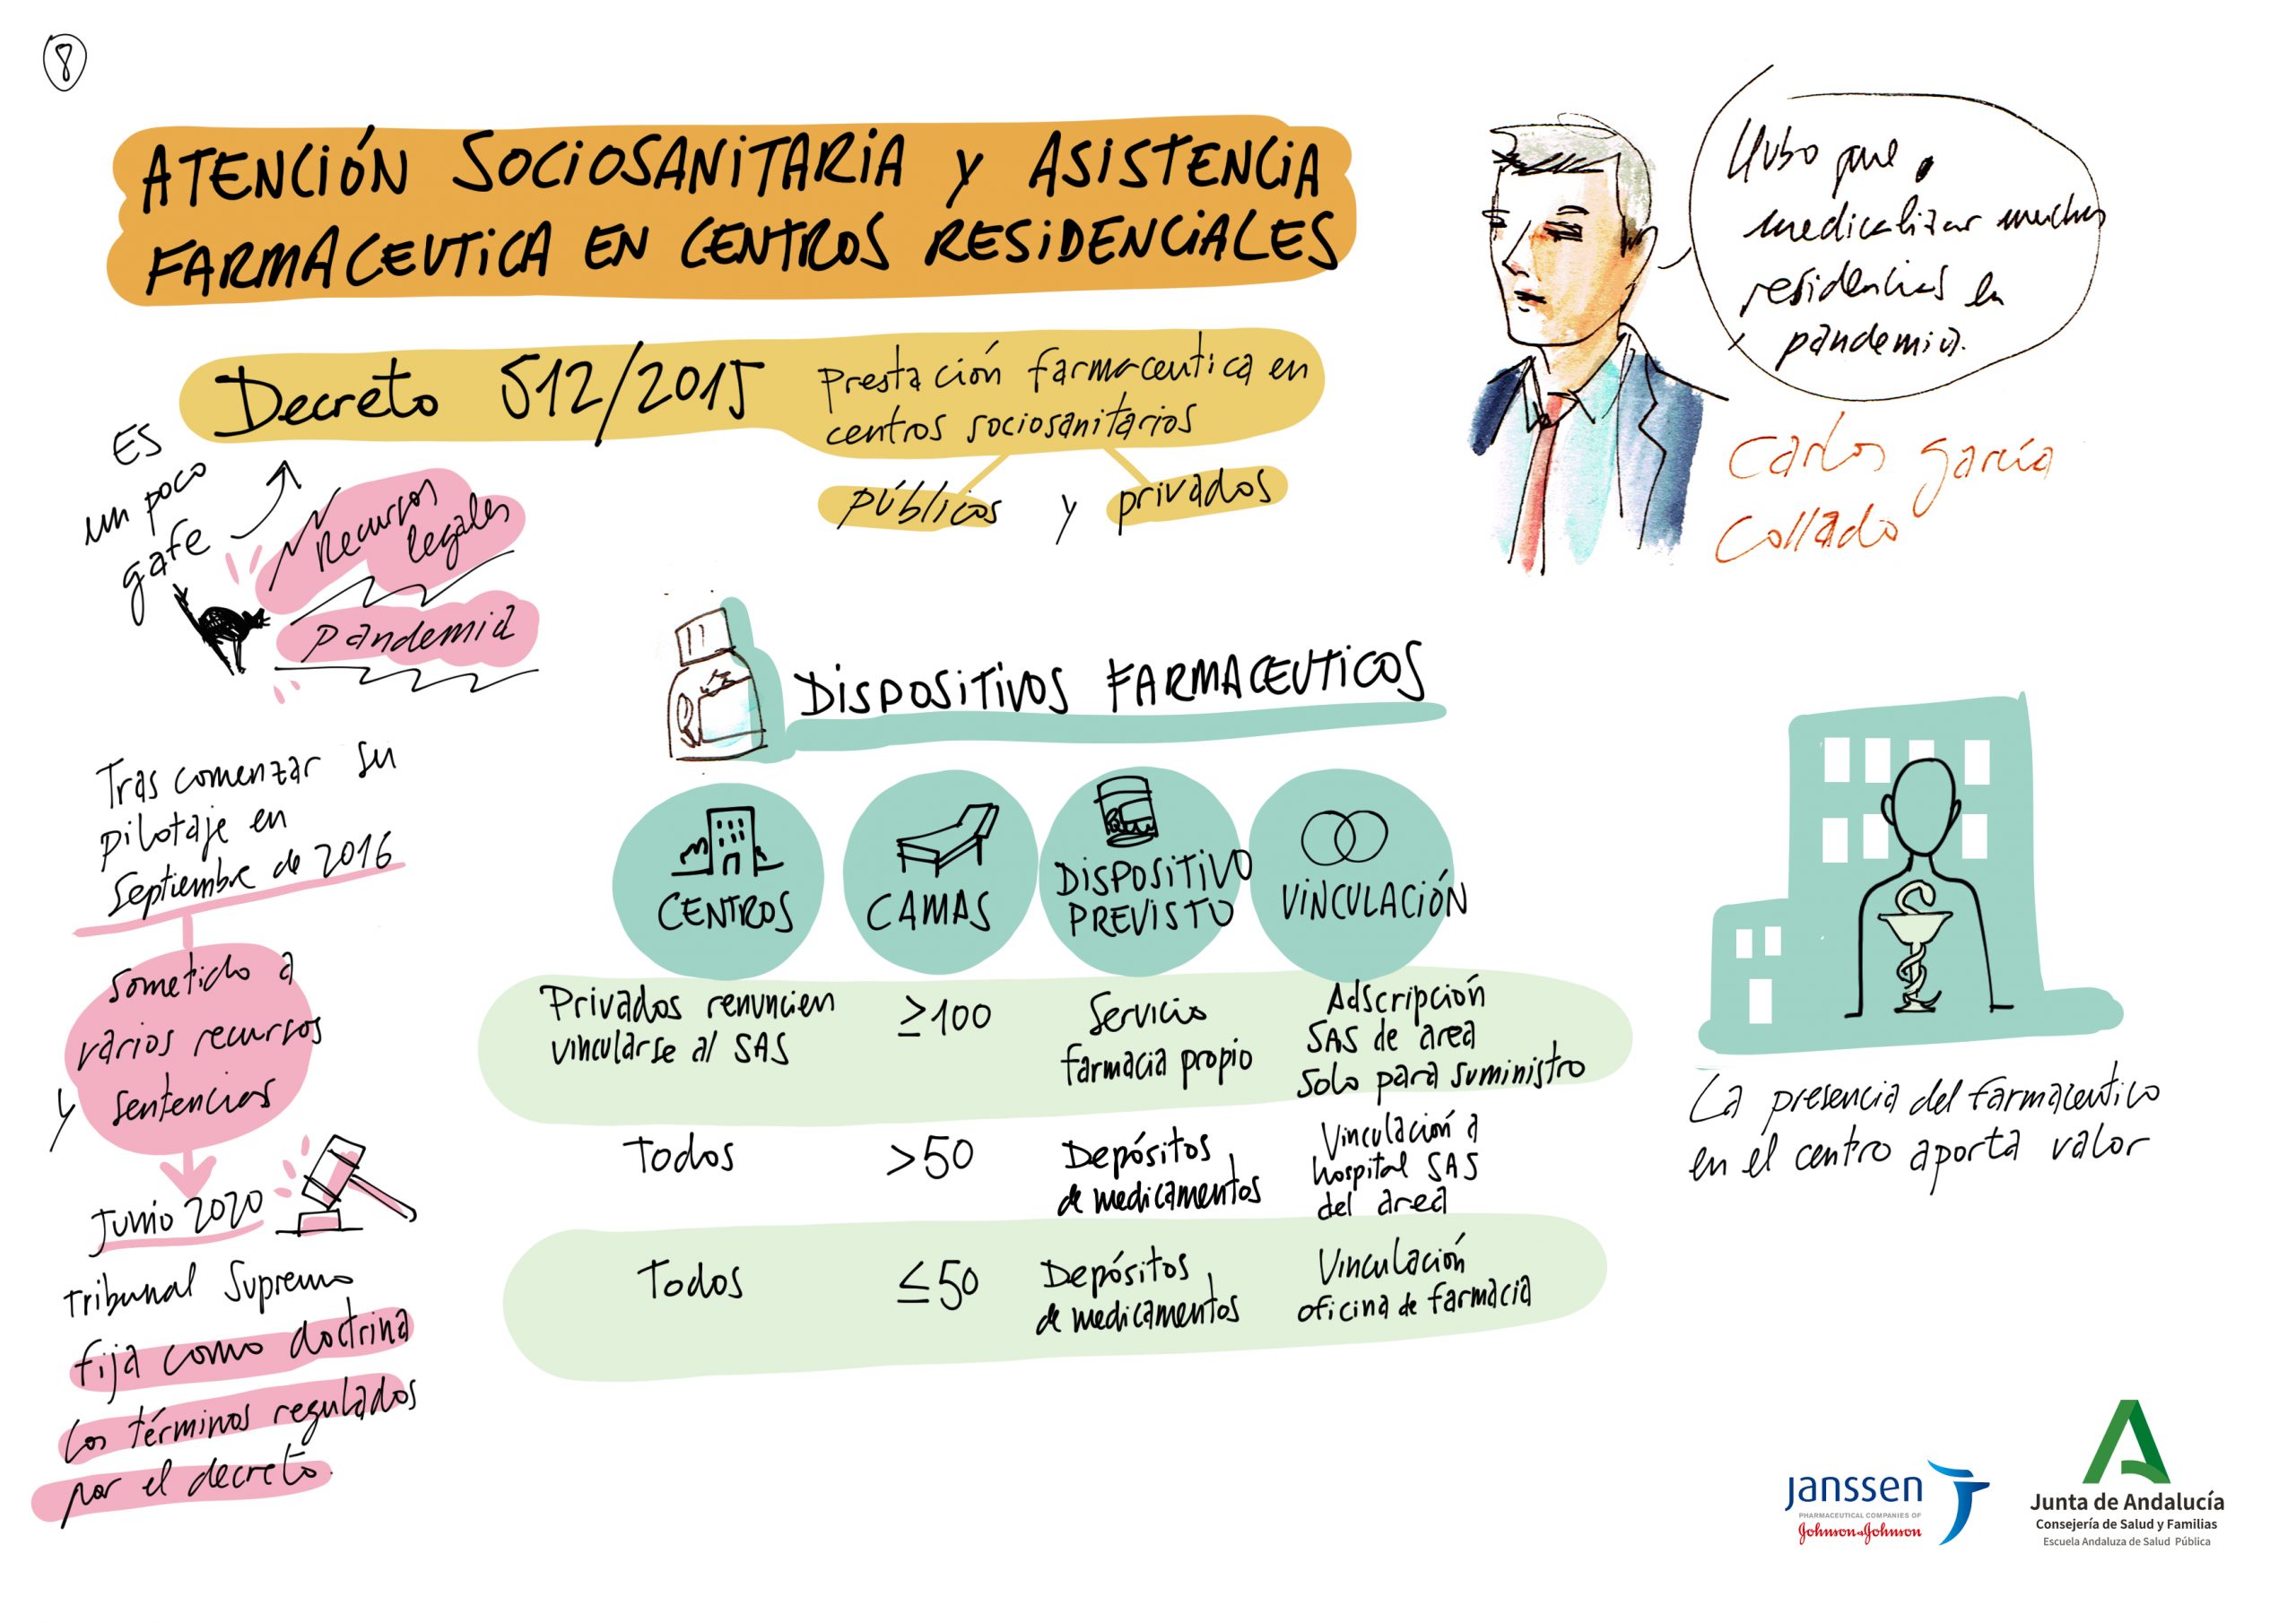 8
ATENCIÓN SOCIOSANITARIA Y ASISTENCIA
FARMACEUTICA EN CENTROS RESIDENCIALES
Hubo que
medicalizar muchas
residencias en
pandemia.
Carlos García
Collado
Decreto 512/2015
Prestación farmaceutica en
centros sociosanitarios
públicos y privados
ES
un poco
gafe
Recursos
legales
Pandemia
Tras comenzar su
pilotaje en
Septiembre de 2016
Sometido a
varios recursos
y sentencias
Junio 2020
Tribunal Supremo
fija como doctrina
los términos regulados
por el decreto.
DISPOSITIVOS FARMACEUTICOS
CENTROS
CAMAS
DISPOSITIVO
PREVISTO
VINCULACIÓN
Privados renuncien
vincularse al SAS
≥100
Servicio
farmacia propio
Adscripción
SAS de area
Solo para suministro
Todos
>50
Depósitos
de medicamentos
Vinculación a
hospital SAS
del area
Todos
≤50
Depósitos
de medicamentos
Vinculación
oficina de farmacia
La presencia del farmaceutico
en el centro aporta valor
janssen
PHARMACEUTICAL COMPANIES OF
Johnson & Johnson
Junta de Andalucía
Consejería de Salud y Familias
Escuela Andaluza de Salud Pública